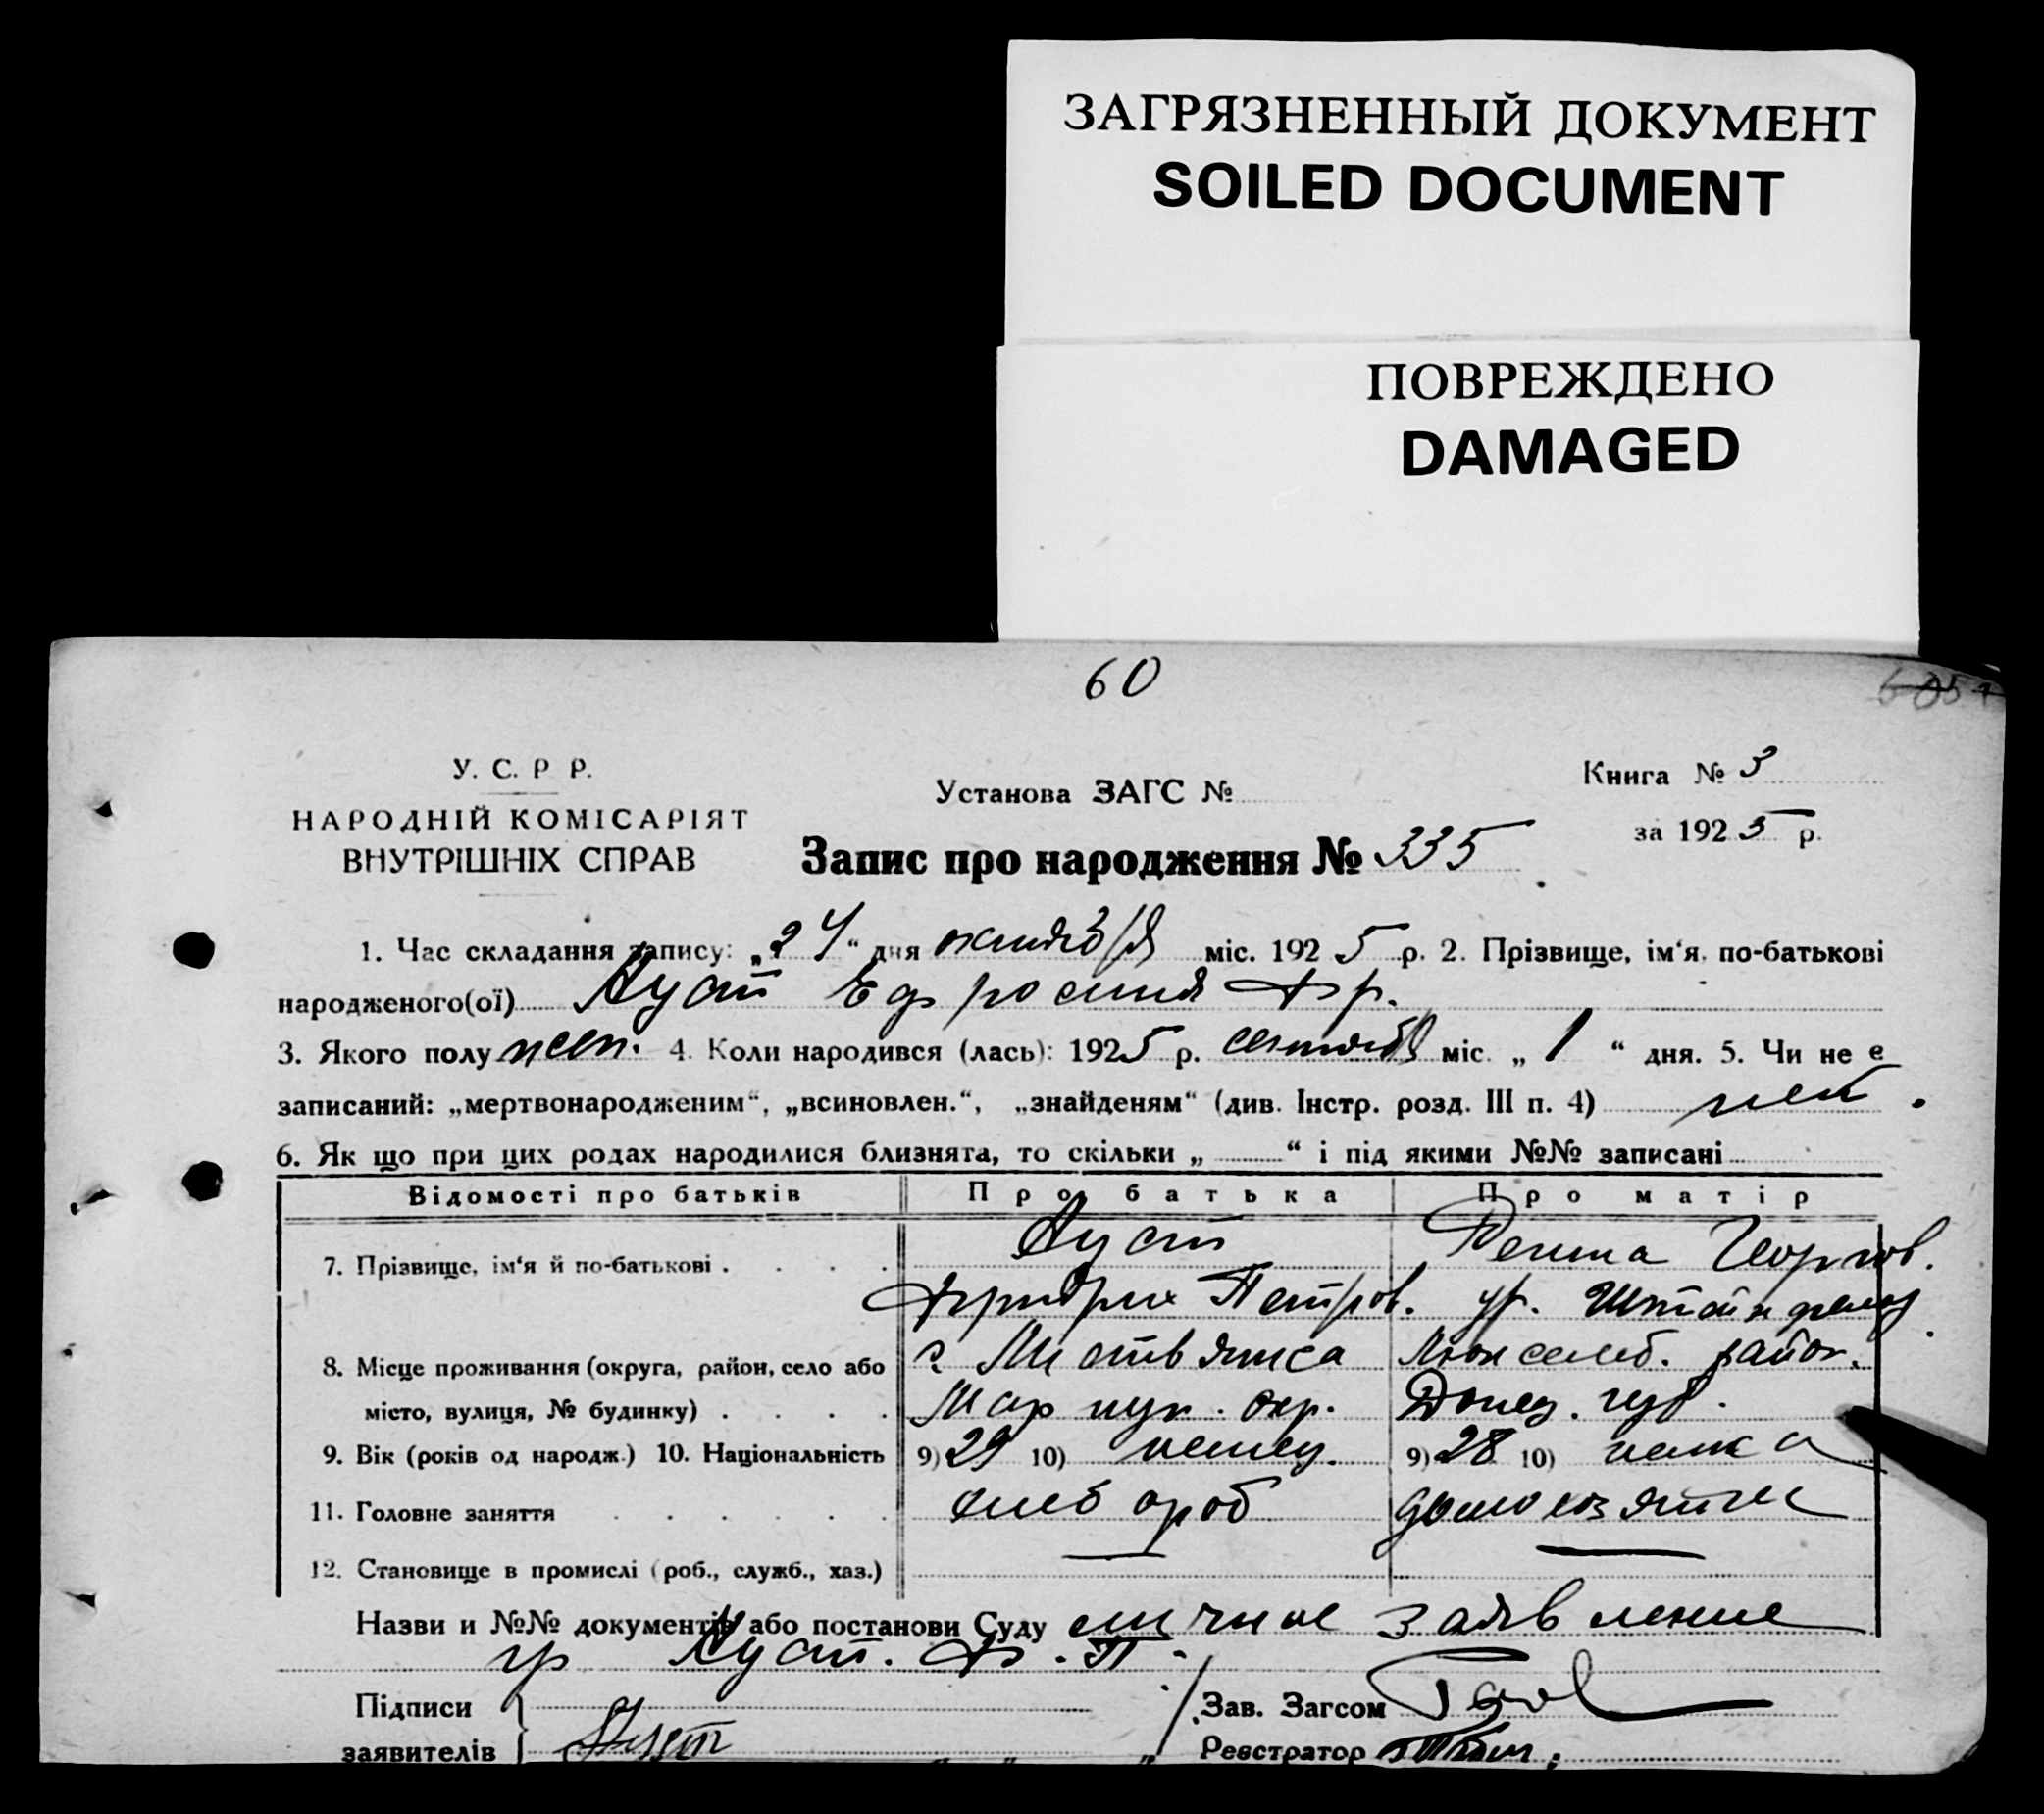 ЗАГРЯЗНЕННЫЙ ДОКУМЕНТ
SOILED DOCUMENT
ПОВРЕЖДЕНО
DAMAGED
60
У. С. Р Р.
НАРОДНІЙ КОМІСАРІЯТ
ВНУТРІШНІХ СПРАВ
Установа ЗАГС №
Книга № 3
за 1925 р.
Запис про народження № 335
1. Час складання запису: „24“ дня октября міс. 1925 р. 2. Прізвище, ім'я, по-батькові
народженого(ої) Ауст Ефросиния Фр.
3. Якого полу жен. 4. Коли народився (лась): 1925 р. сентября міс. „1“ дня. 5. Чи не е
записаний: „мертвонародженим“, „всиновлен.“, „знайденям“ (див. Інстр. розд. III п. 4) нет.
6. Як що при цих родах народилися близнята, то скільки „ “ і під якими №№ записані
Відомості про батьків Про батька Про матір
7. Прізвище, ім'я й по-батькові Ауст
Фридрих Петров.
8. Місце проживання (округа, район, село або
місто, вулиця, № будинку) Донец. губ.
9. Вік (років од народж.) 10. Національність 9) 29 10) немец. 9) 28 10) немка
11. Головне заняття хлебороб домохозяйка
12. Становище в промислі (роб., служб., хаз.)
Назви и №№ документів або постанови Суду личное заявление
гр Ауст. Ф. П.
Підписи
заявителів Ауст
Зав. Загсом
Реєстратор